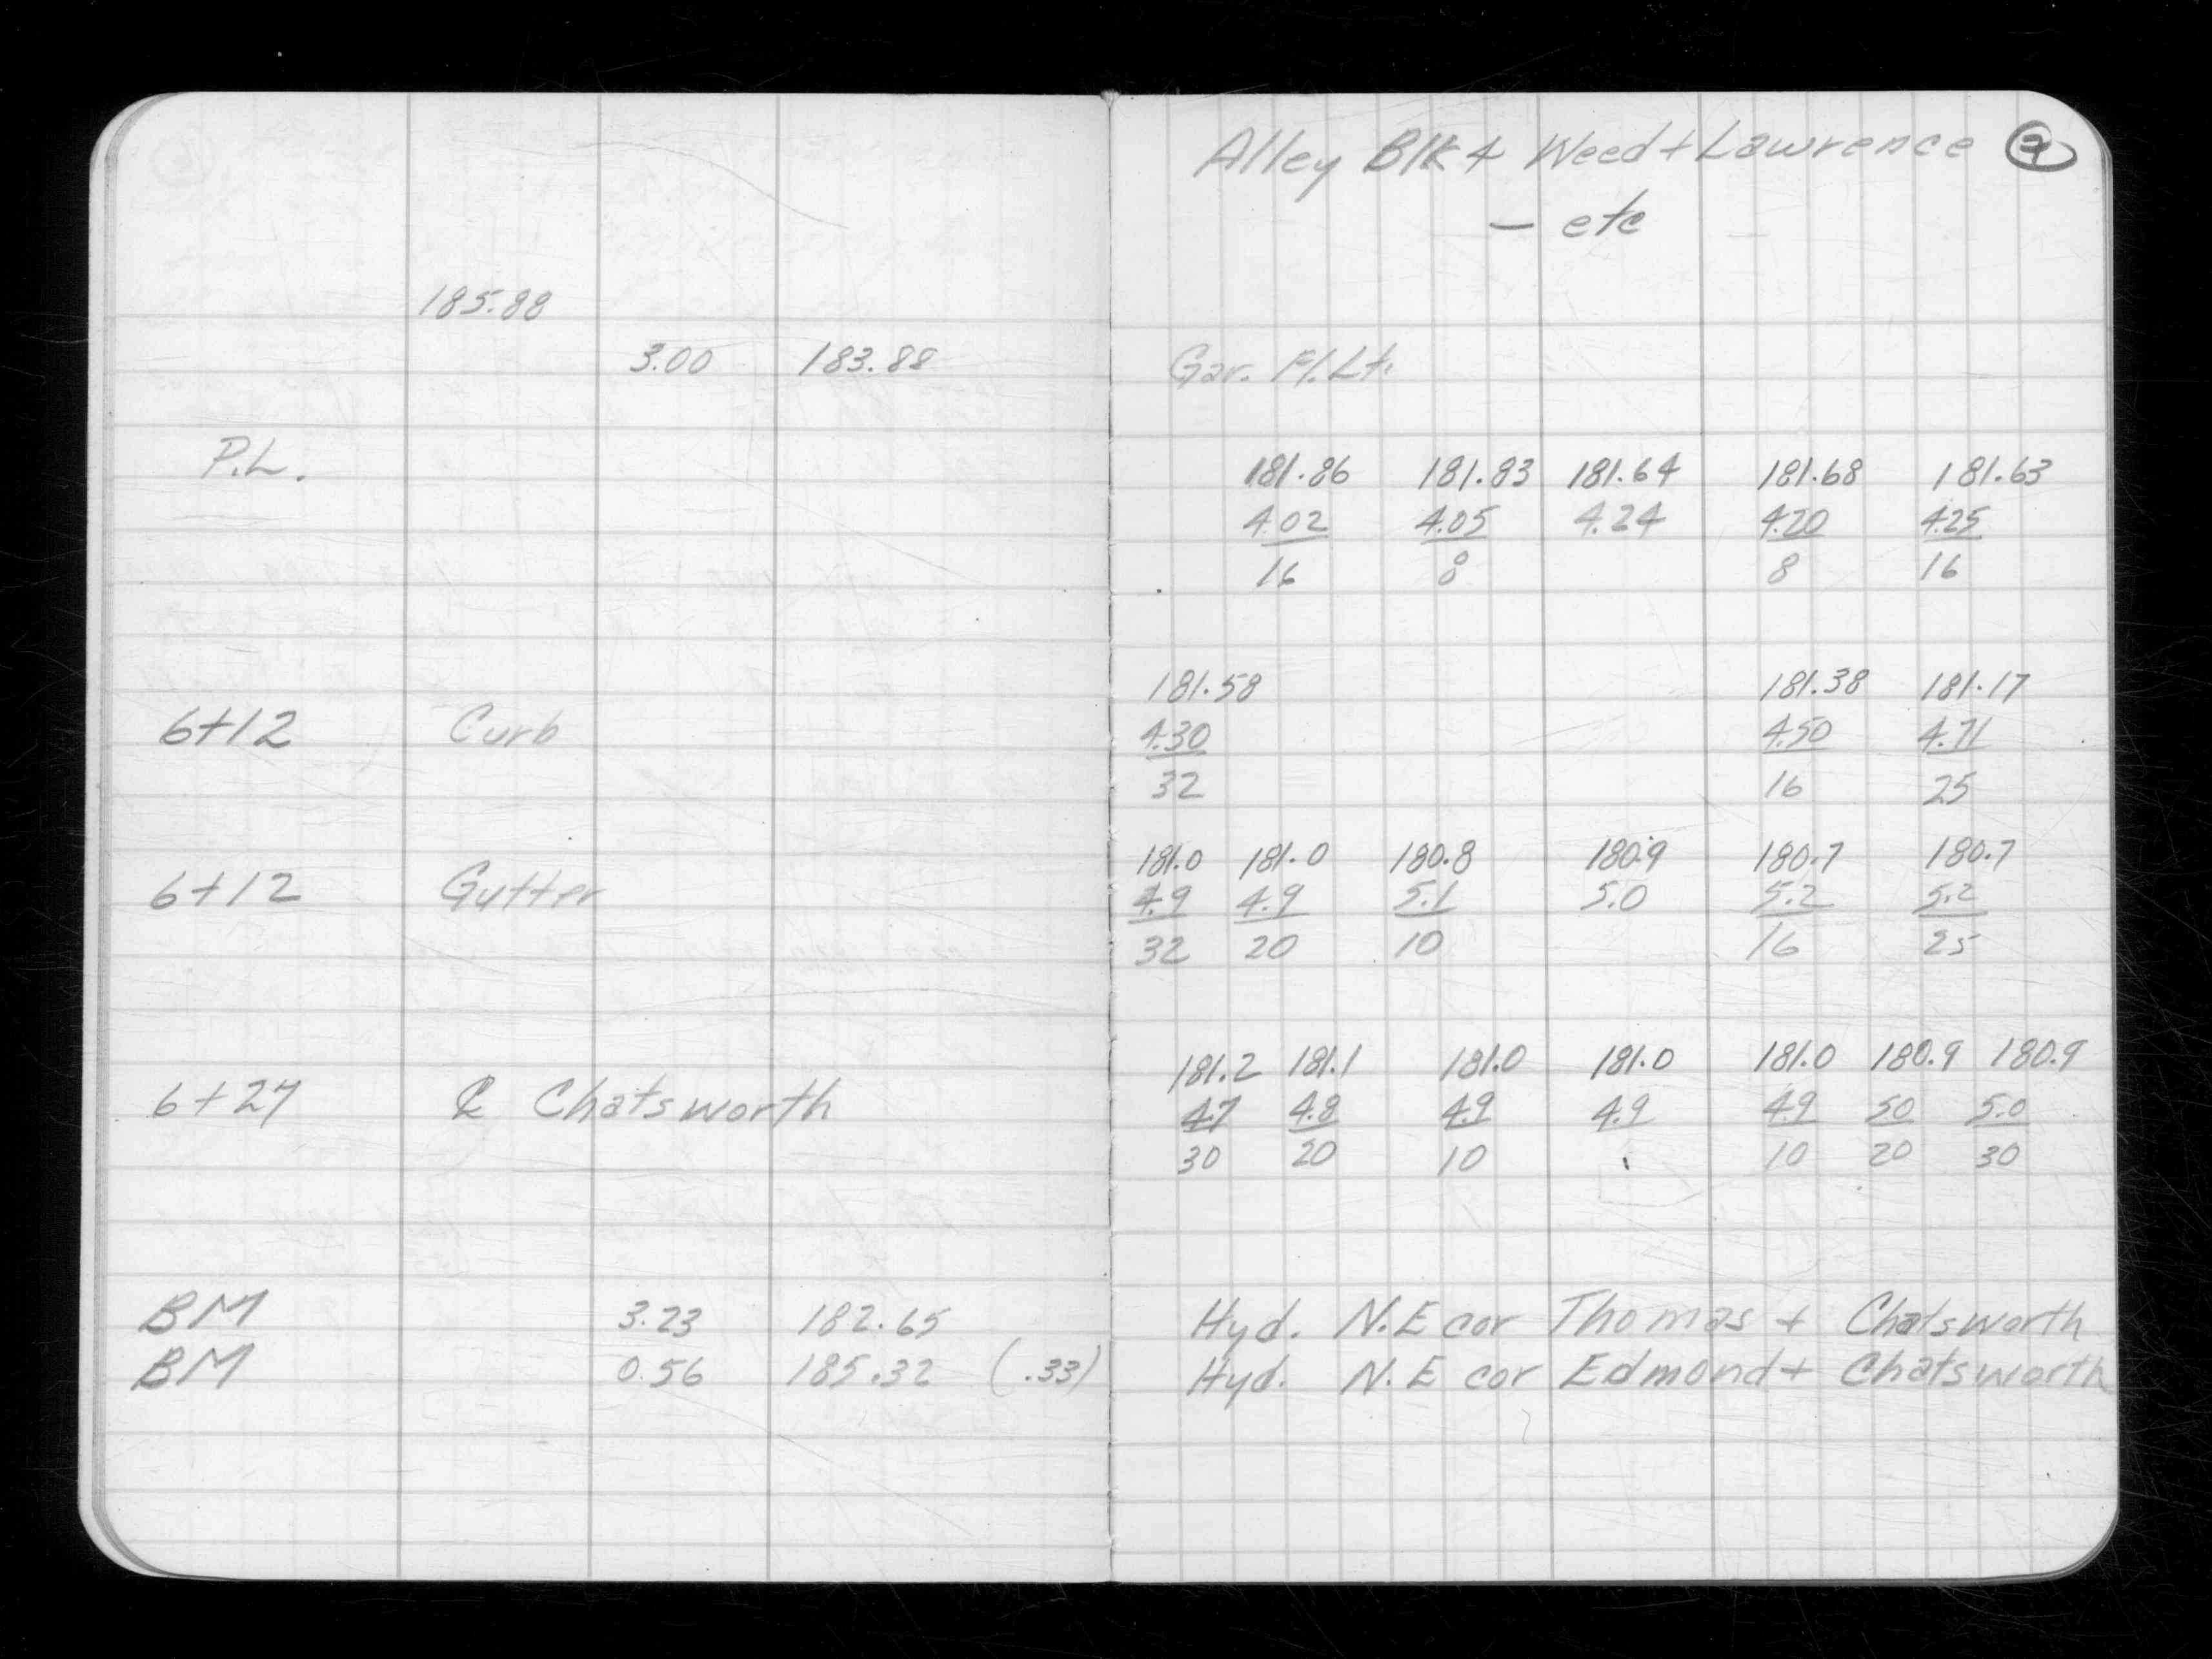 Alley Blk 4 Weed + Lawrence
- etc
185.88
3.00 183.88 Gar. Fl. Lt.
P.L. 181.86 181.83 181.64 181.68 181.63
4.02 4.05 4.24 4.20 4.25
16 8 8 16
181.58 181.38 181.17
6+12 Curb 4.30 4.50 4.71
32 16 25
181.0 181.0 180.8 180.9 180.7 180.7
6+12 Gutter 4.9 4.9 5.1 5.0 5.2 5.2
32 20 10 16 25
181.2 181.1 181.0 181.0 181.0 180.9 180.9
6+27 ℄ Chatsworth 4.7 4.8 4.9 4.9 4.9 50 5.0
30 20 10 10 20 30
BM 3.23 182.65 Hyd. N.E cor Thomas + Chatsworth
BM 0.56 185.32 (.33) Hyd. N.E cor Edmond + Chatsworth